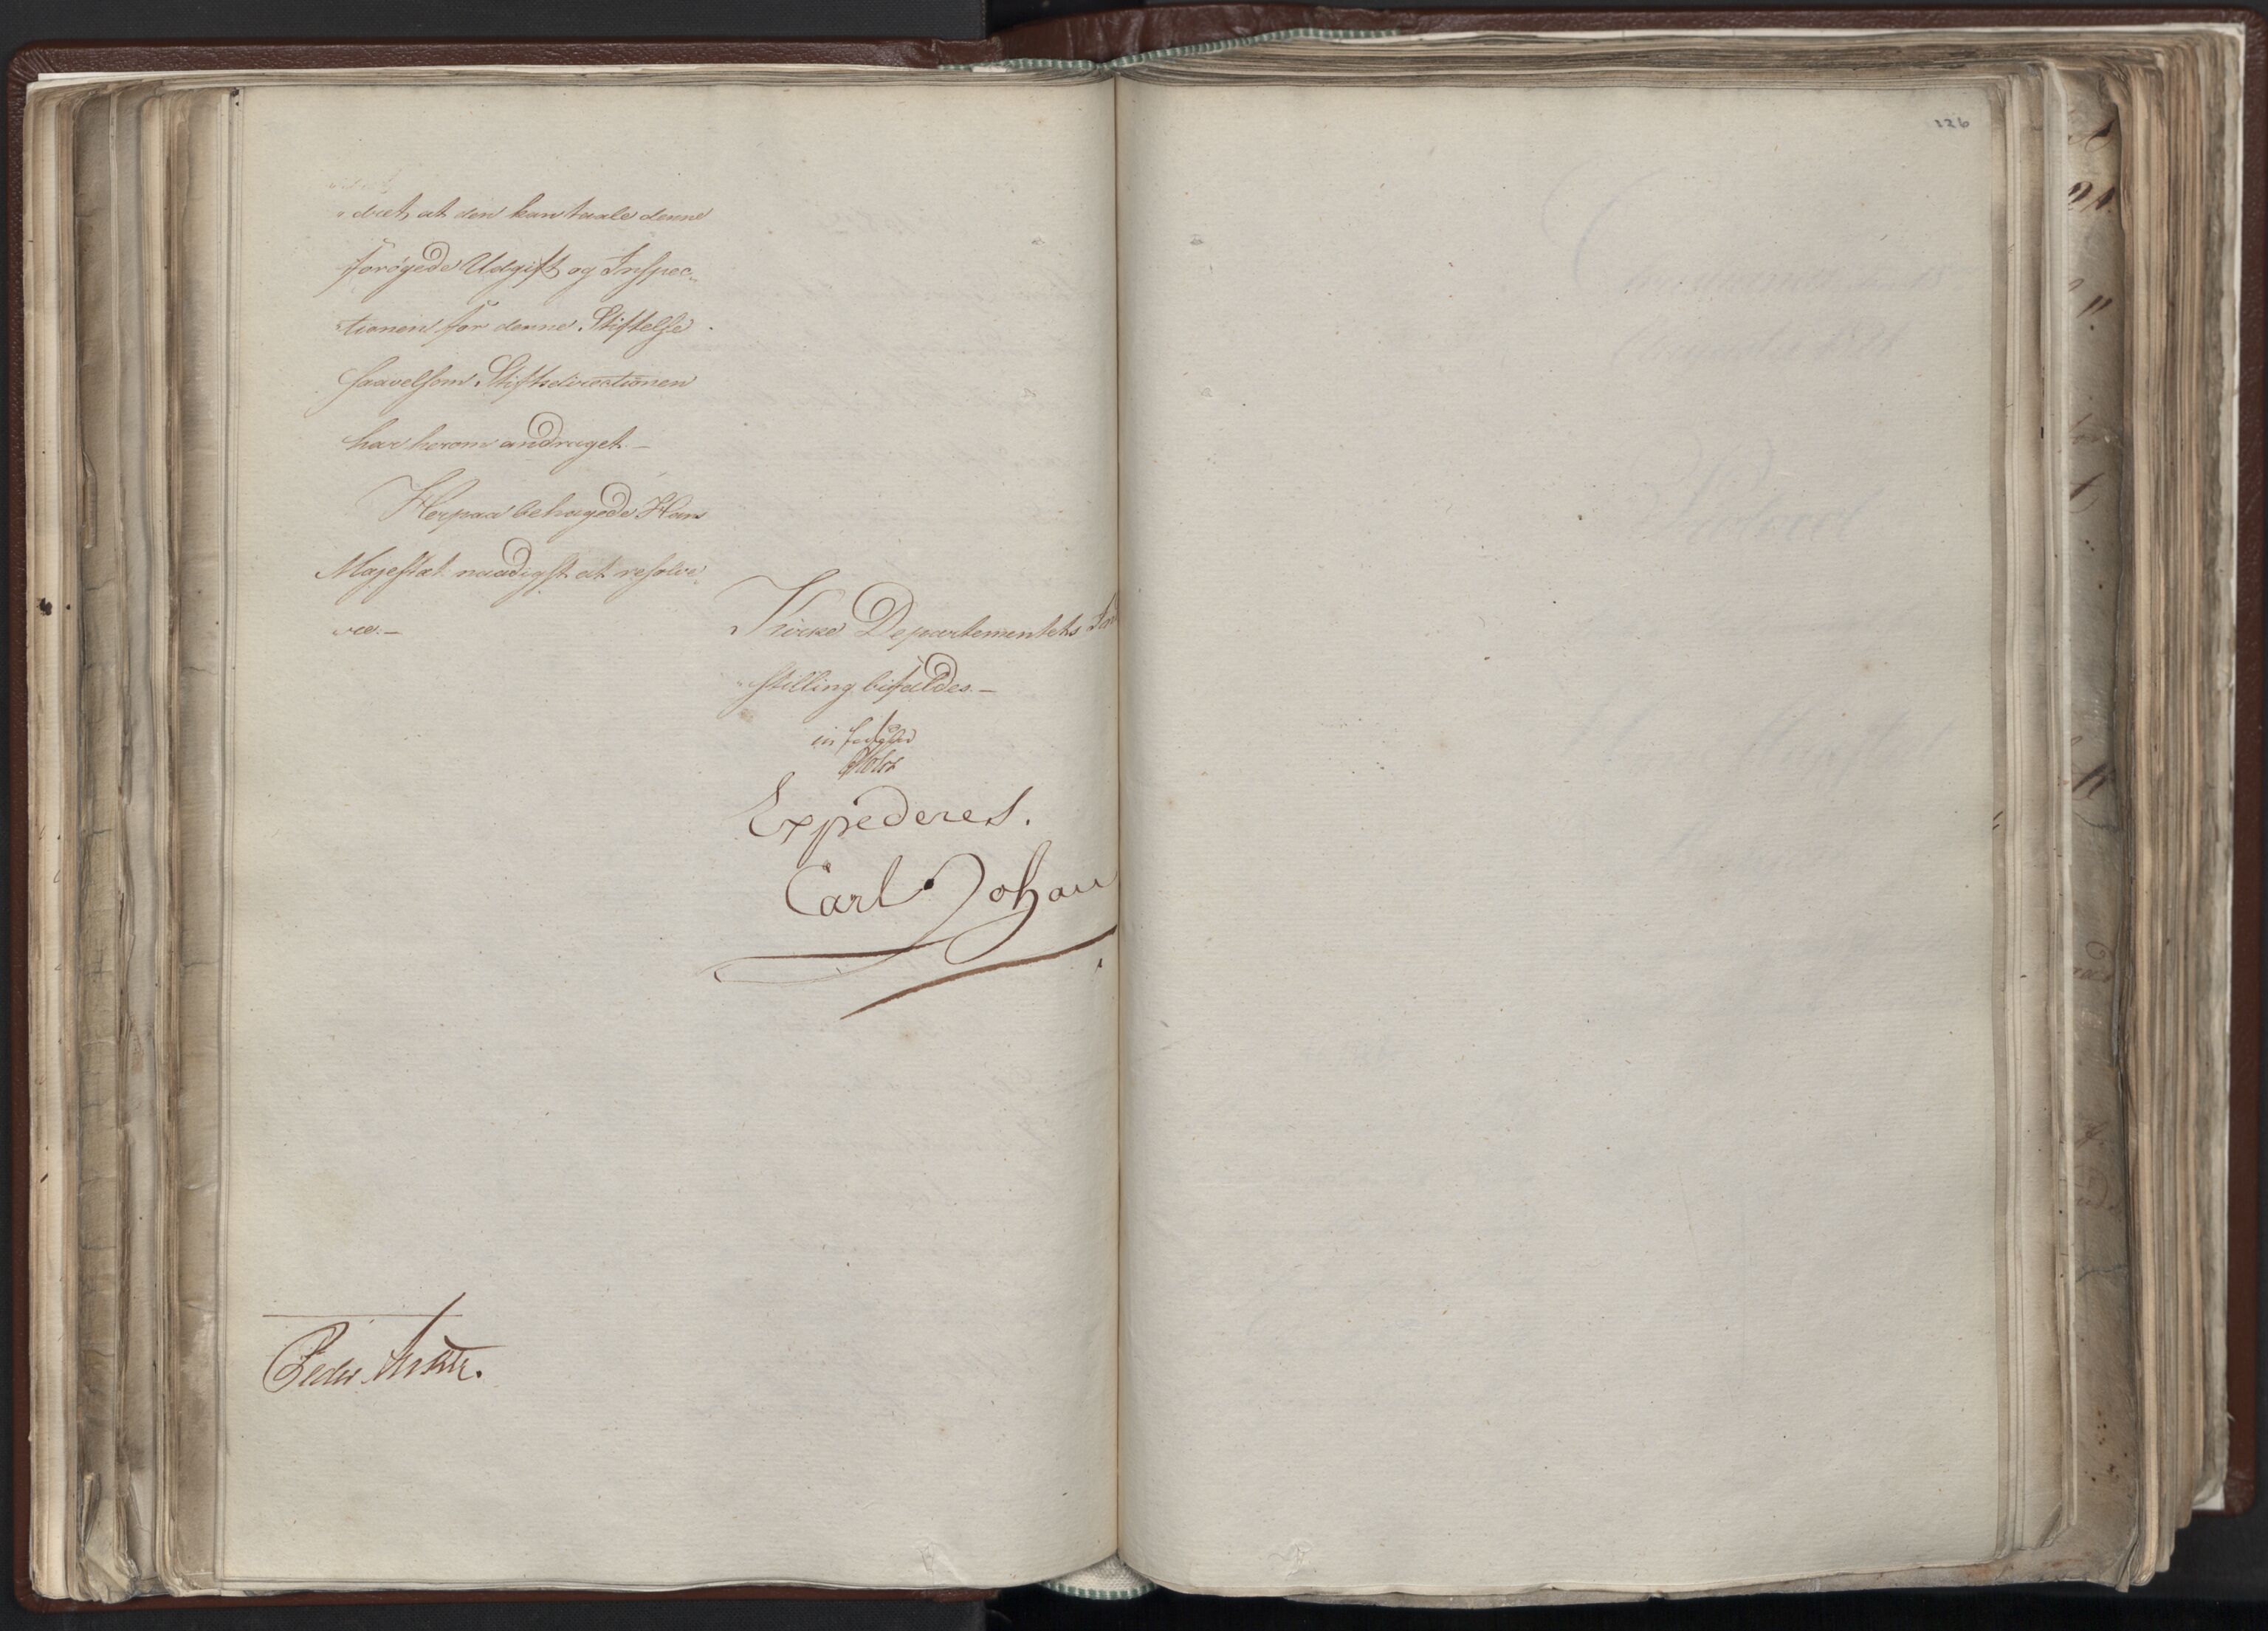 det, at den kan taale denne
forögede Udgift og Inspec-
tionen for denne Stiftelse
saavelsom Stiftsdirectionen
har herom andraget.—
Herpaa behagede Hans
Majestæt naadigst at resolve
re.—
Kirke Departementets Ind
stilling bifaldes.—
in fidem
Holst
Expederes.
Carl Johan
Peder Anker.
126